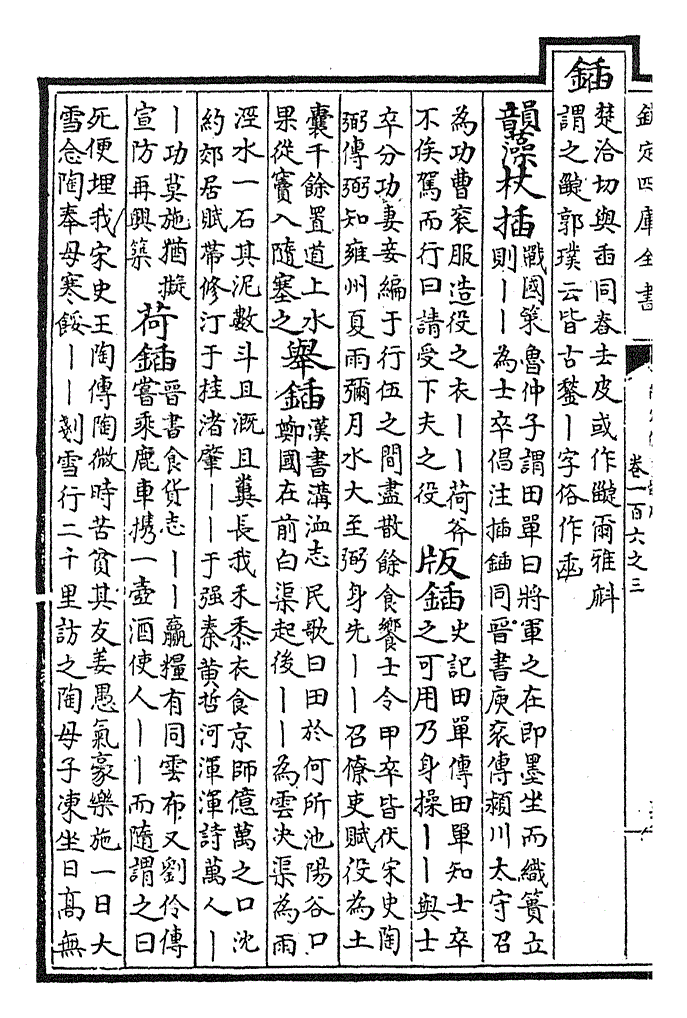 欽定四庫全書
卷一百六之三
鍤
楚洽切與臿同舂去皮或作䤔爾雅㪺
謂之䤔郭璞云皆古鍫丨字俗作臿
韻藻
杖插
戰國策魯仲子謂田單曰將軍之在即墨坐而織蕢立
則丨丨為士卒倡注插鍤同晉書庾衮傳潁川太守召
為功曹衮服造役之衣丨丨荷斧
不俟駕而行曰請受下夫之役
版鍤
史記田單傳田單知士卒
之可用乃身操丨丨與士
卒分功妻妾編于行伍之間盡散餘食饗士令甲卒皆伏宋史陶
弼傳弼知雍州夏雨彌月水大至弼身先丨丨召僚吏賦役為土
囊千餘置道上水
果從竇入隨塞之
舉鍤
漢書溝洫志民歌曰田於何所池陽谷口
鄭國在前白渠起後丨丨為雲決渠為雨
涇水一石其泥數斗且溉且糞長我禾黍衣食京師億萬之口沈
約郊居賦帶修汀于桂渚肇丨丨于强秦黃哲河渾渾詩萬人丨
丨功莫施猶擬
宣防再興築
荷鍤
晉書食貨志丨丨贏糧有同雲布又劉伶傳
嘗乘鹿車攜一壺酒使人丨丨而隨謂之曰
死便埋我宋史王陶傳陶微時苦貧其友姜愚氣豪樂施一日大
雪念陶奉母寒餒丨丨剗雪行二十里訪之陶母子凍坐日高無